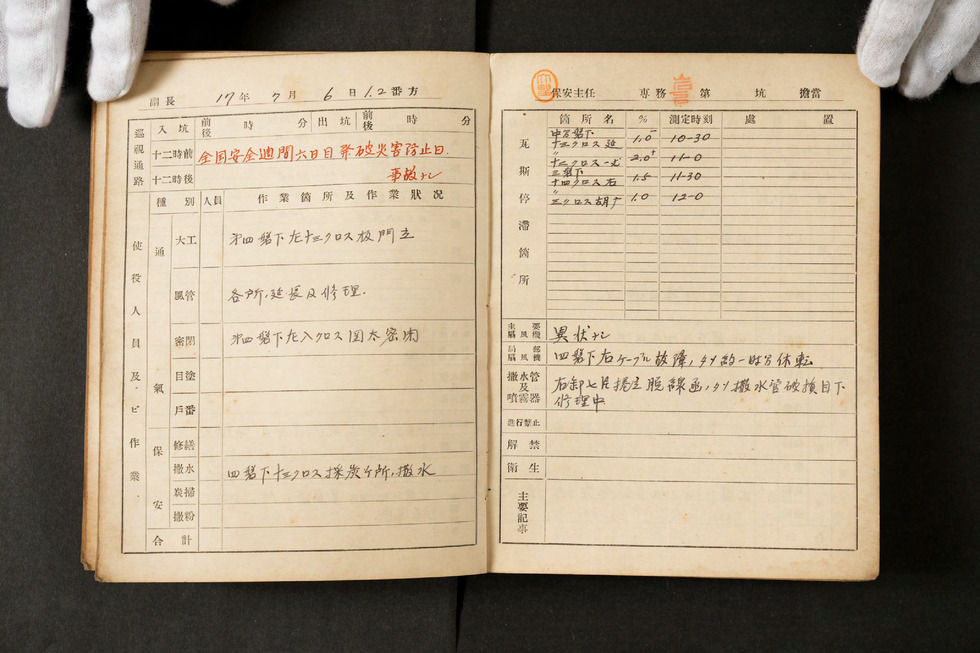 副長 17年7月6日1.2番方
巡視通路
入坑 前後 時 分 出坑 前後 時 分
十二時前 全国安全週間六日目発破災害防止日.
十二時後 事故ナシ
使役人員及ビ作業
種別 人員 作業箇所及作業状況
通氣
大工 第四盤下左十三クロス板門立
風管 各所,延長及修理.
密閉 第四盤下左入クロス 密閉
目塗
戶番
保安
修繕
撒水 四盤下十三クロス採炭ケ所,撒水
炭掃
撒粉
合計
保安主任 専務 第 坑 擔當
瓦斯停滞箇所
箇所名 % 測定時刻 處置
十三クロス延 1.0⁻ 10-30
〃
十二クロス 2.0⁺ 11-0
三盤下
十四クロス右 1.5 11-30
〃
三クロス 1.0 12-0
主要扇風機 異状ナシ
局部扇風機 四盤下右ケーブル故障,タメ約一時間休転
撒水管及噴霧器 右卸七片捲立脱線函,タメ撒水管破損目下
修理中
進行禁止
解禁
衛生
主要記事